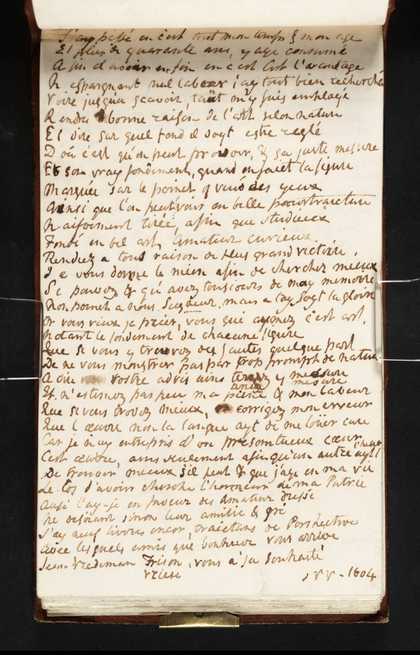 J'ay passé en c'est tout mon temps & mon age
Et plus de quarante ans, y age consumé
Afin d'avoir enfin en c'est l'avantage
N espargnant nul labeur j'ay tout bien recherché
Voire jusqu'a scavoir, tant m'y suis employé
Rendre bonne raison de l'art selon nature
Et dire sur quel fond il doyt estre reglé
D'ou c'est qu'on peut & sa juste mesure
Et son vray fondement, quand on faict la figure
Marquer sur le poinct vuid des yeux
Ainsi que l'on peut voir en belle pourtraicture
N aisement tirée, afin que studieux
Fondé en bel art, amateur curieux
Rendez a tous raison de plus grand victoire,
Je vous donne le mien afin de chercher mieux
Si pouvez & qu'ayez tousiours de moy memoire
Non poinct a nous Seigneur, mais a toy soyt la gloire
Or vous veux je prier, vous qui aymez c'est art,
Notant le fondement de chacune figure
Que si vous y trouvez des fautes quelque part
De ne vous monstrer pas par trop prompt de nature
A dire vostre advis ains mesure
Et n'estonnez pas peu ma peine & mon labeur
Que si vous trouvez mieux, corrigez mon erreur
Que l'œuvre non la langue ayt de me luier cure
Car je n'ay entrepris d'un presomtueux cœur
C'est œuvre, ains seulement afin qu'un autre ayt
De trouver mieux s'il peut & que j'aye en ma vie
Le los d'avoir cherché l'honneur de ma Patrie
Aussi l'ay-je en faveur des amateur dressé
Ne desirant sinon leur amitié & gré
J'ay neuf livres encor, traictans de Perspective
Avec lesquels amis que bonheur vous arrive
Jean Vredeman Frison, vous a ja souhaité
Vriese
JVV - 1604